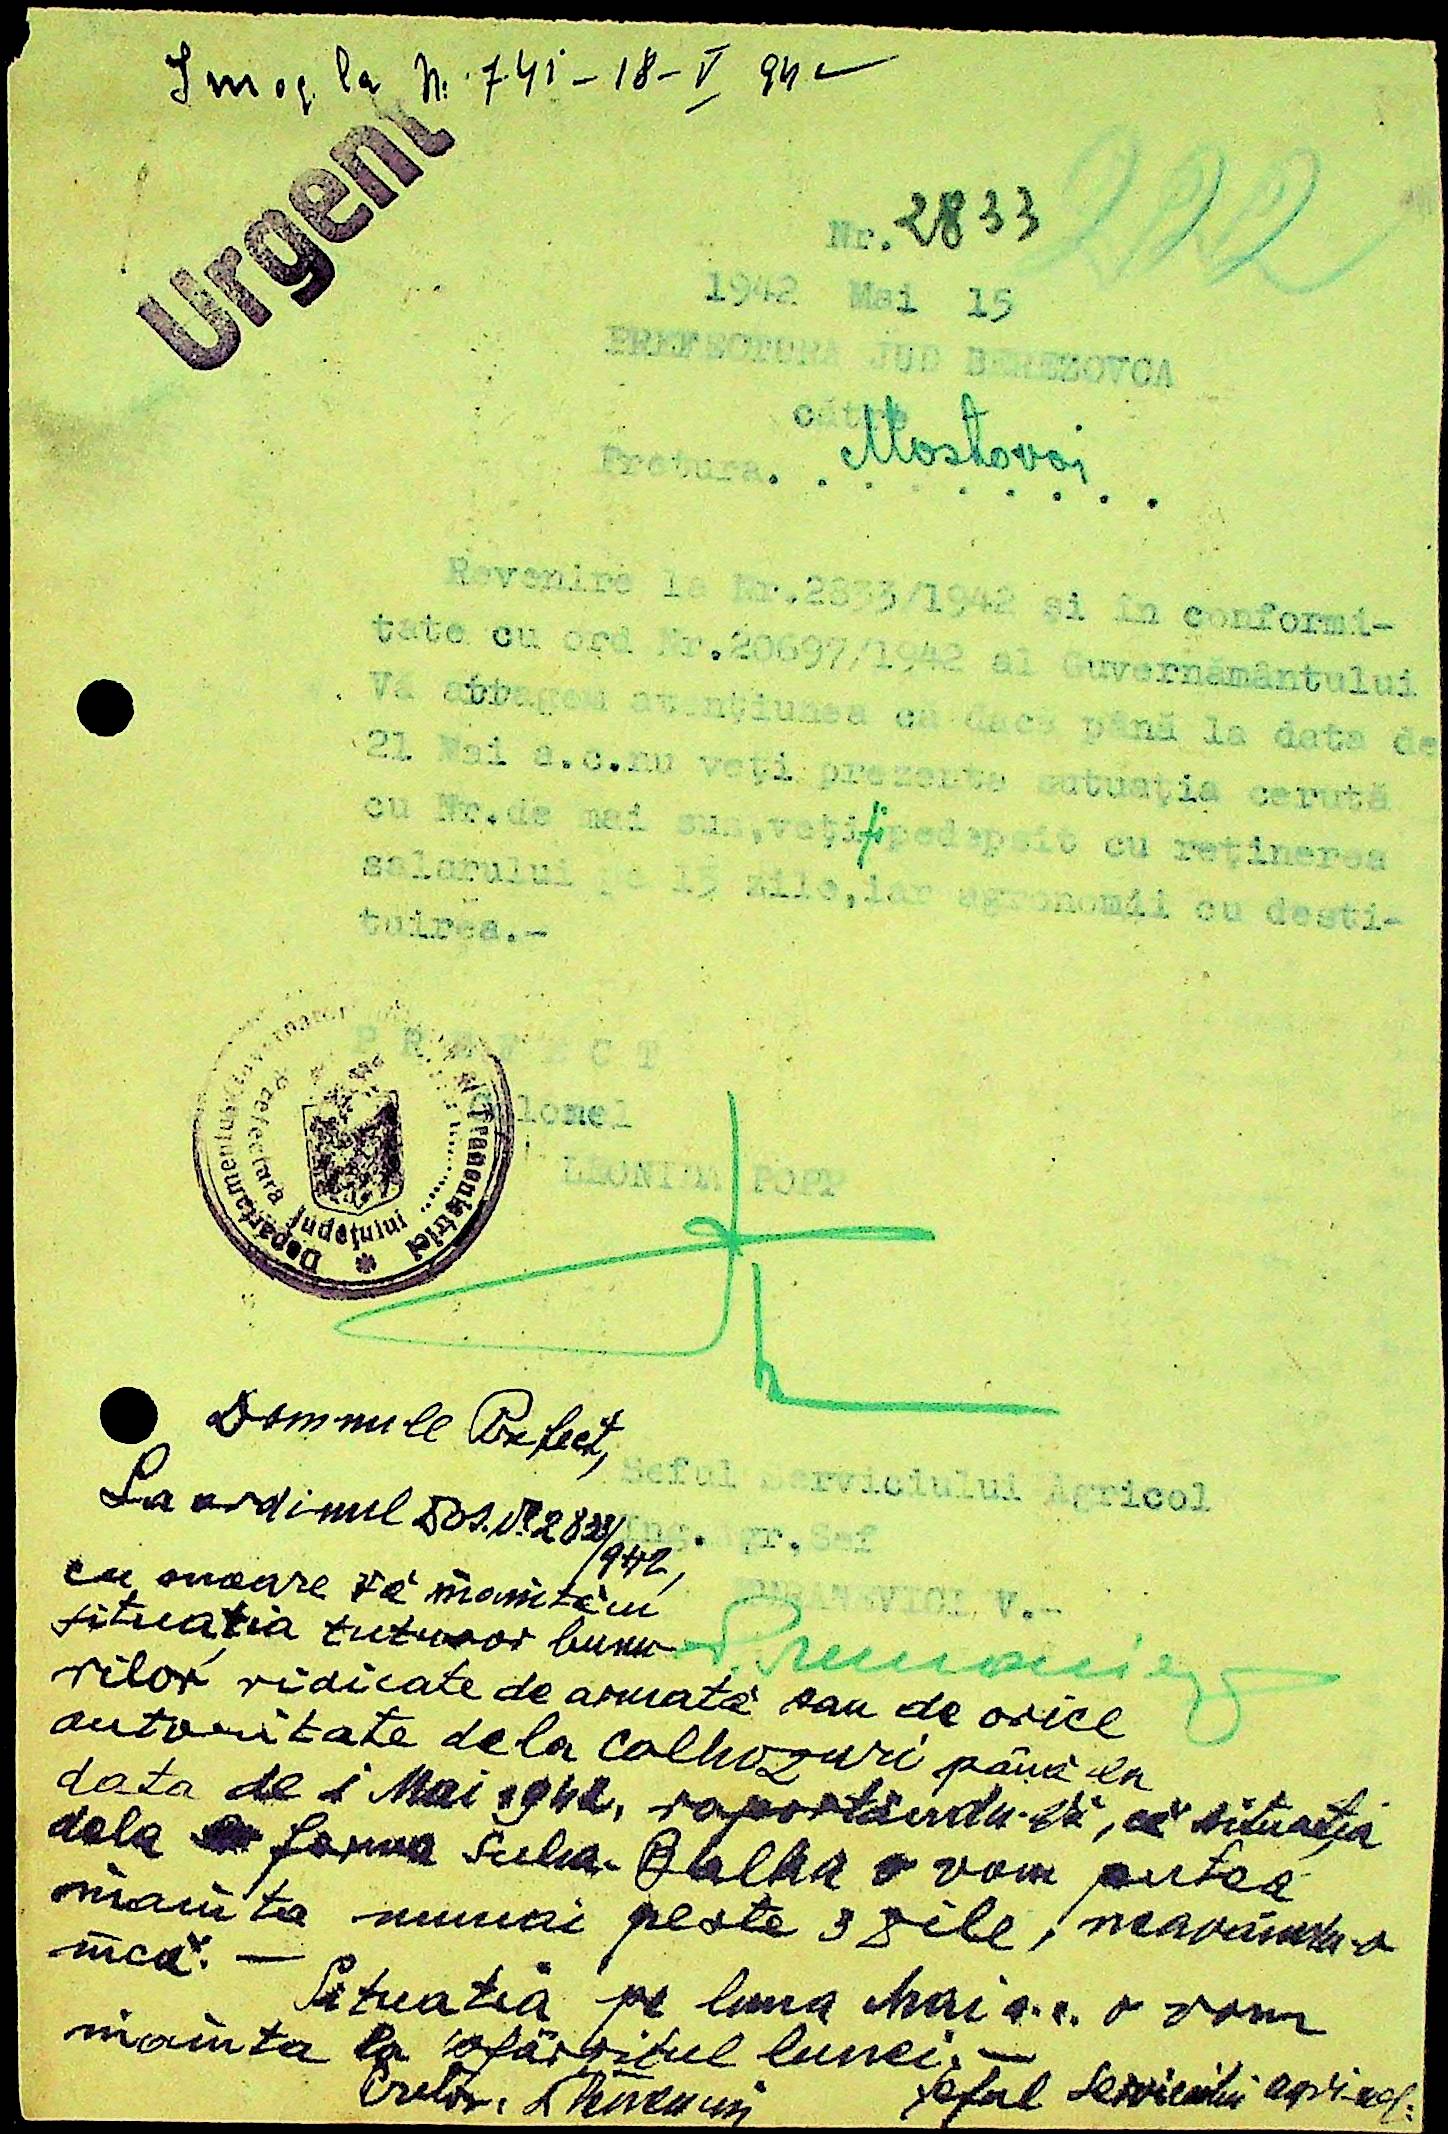 Inreg. la Nr. 741-18-V 942
Urgent
222
Nr. 2833
1942 Mai 15
PREFECTURA JUD BEREZOVCA
către
Pretura. Mostovoi . . .
Revenire la Nr.2833/1942 și în conformi-
tate cu ord Nr.20697/1942 al Guvernământului
Vă atragem atențiunea ca dacă până la data de
21 Mai a.c.nu veți prezenta sutuația cerută
cu Nr.de mai sus,veți fi pedepsit cu reținerea
salarului pe 15 zile,iar agronomii cu desti-
tuirea.-
PREFECT
Colonel
LEONIDA POPP
Departamentul Guvernator Transnistriei
Prefectura Județului
Șeful Serviciului Agricol
Ing.Agr,Șef
V.-
Domnule Prefect,
La ordinul Dvs. Nr 2833/942,
cu onoare vă înaintăm
situația tuturor bunu-
rilor ridicate de armată sau de orice
autoritate dela colhozuri până la
data de 1 Mai 1942, raportându-vă, că situația
dela ferma Suha-Balka o vom putea
înainta numai peste 3 zile, neavându-o
încă. —
Situația pe luna Mai a.c. o vom
înainta la sfârșitul lunei. —
Pretor,
Șeful Serviciului agricol: